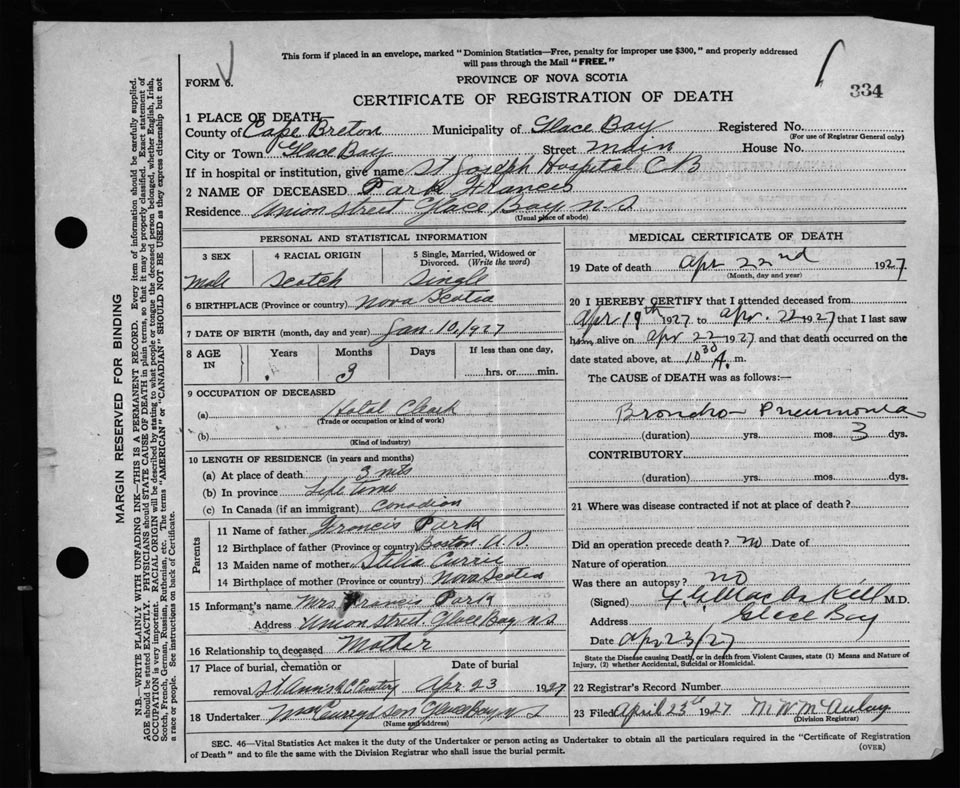 This form if placed in an envelope, marked "Dominion Statistics—Free, penalty for improper use $300," and properly addressed
will pass through the Mail "FREE."
FORM 6.
PROVINCE OF NOVA SCOTIA
334
CERTIFICATE OF REGISTRATION OF DEATH
1 PLACE OF DEATH
County of Cape Breton Municipality of Glace Bay Registered No.
(For use of Registrar General only)
City or Town Glace Bay Street Main House No.
If in hospital or institution, give name St Joseph Hospital C B
2 NAME OF DECEASED Park Francis
Residence Union Street Glace Bay N S
(Usual place of abode)
PERSONAL AND STATISTICAL INFORMATION
3 SEX 4 RACIAL ORIGIN 5 Single, Married, Widowed or Divorced. (Write the word)
male Scotch Single
6 BIRTHPLACE (Province or country) Nova Scotia
7 DATE OF BIRTH (month, day and year) Jan. 10, 1927
8 AGE IN Years Months Days If less than one day,
3 hrs. or min.
9 OCCUPATION OF DECEASED
(a) Hotel Clerk
(Trade or occupation or kind of work)
(b)
(Kind of industry)
10 LENGTH OF RESIDENCE (in years and months)
(a) At place of death 3 mts
(b) In province Life time
(c) In Canada (if an immigrant) Canadian
Parents
11 Name of father Francis Park
12 Birthplace of father (Province or country) Boston. U. S.
13 Maiden name of mother Stella Currie
14 Birthplace of mother (Province or country) Nova Scotia
15 Informant's name Mrs Francis Park
Address Union Street. Glace Bay N S
16 Relationship to deceased Mother
17 Place of burial, cremation or removal Date of burial
St Anns Apr 23 1927
18 Undertaker Son Glace Bay N S
(Name and address)
MEDICAL CERTIFICATE OF DEATH
19 Date of death Apr 22nd 1927
(Month, day and year)
20 I HEREBY CERTIFY that I attended deceased from
Apr 19th 1927 to Apr. 22 1927 that I last saw
him alive on Apr 22 1927 and that death occurred on the
date stated above, at 10 30 A. m.
The CAUSE of DEATH was as follows:—
Broncho Pneumonia
(duration) yrs. mos. 3 dys.
CONTRIBUTORY
(duration) yrs. mos. dys.
21 Where was disease contracted if not at place of death?
Did an operation precede death? No Date of
Nature of operation
Was there an autopsy? no
(Signed) M.D.
Address Glace Bay
Date Apr 23/27
State the Disease causing Death, or in death from Violent Causes, state (1) Means and Nature of
Injury, (2) whether Accidental, Suicidal or Homicidal.
22 Registrar's Record Number
23 Filed April 23d 1927 M W McAulay
(Division Registrar)
SEC. 46—Vital Statistics Act makes it the duty of the Undertaker or person acting as Undertaker to obtain all the particulars required in the "Certificate of Registration
of Death" and to file the same with the Division Registrar who shall issue the burial permit.
(OVER)
MARGIN RESERVED FOR BINDING
N.B.—WRITE PLAINLY WITH UNFADING INK—THIS IS A PERMANENT RECORD. Every item of information should be carefully supplied.
AGE should be stated EXACTLY. PHYSICIANS should STATE CAUSE OF DEATH in plain terms, so that it may be properly classified. Exact statement of
OCCUPATION is very important. RACIAL ORIGIN will be described by stating to what people or tongue the deceased person belonged, whether English, Irish,
Scotch, French, German, Russian, Ruthenian, etc. The terms "AMERICAN" or "CANADIAN" SHOULD NOT BE USED as they express citizenship but not
a race or people. See instructions on back of Certificate.